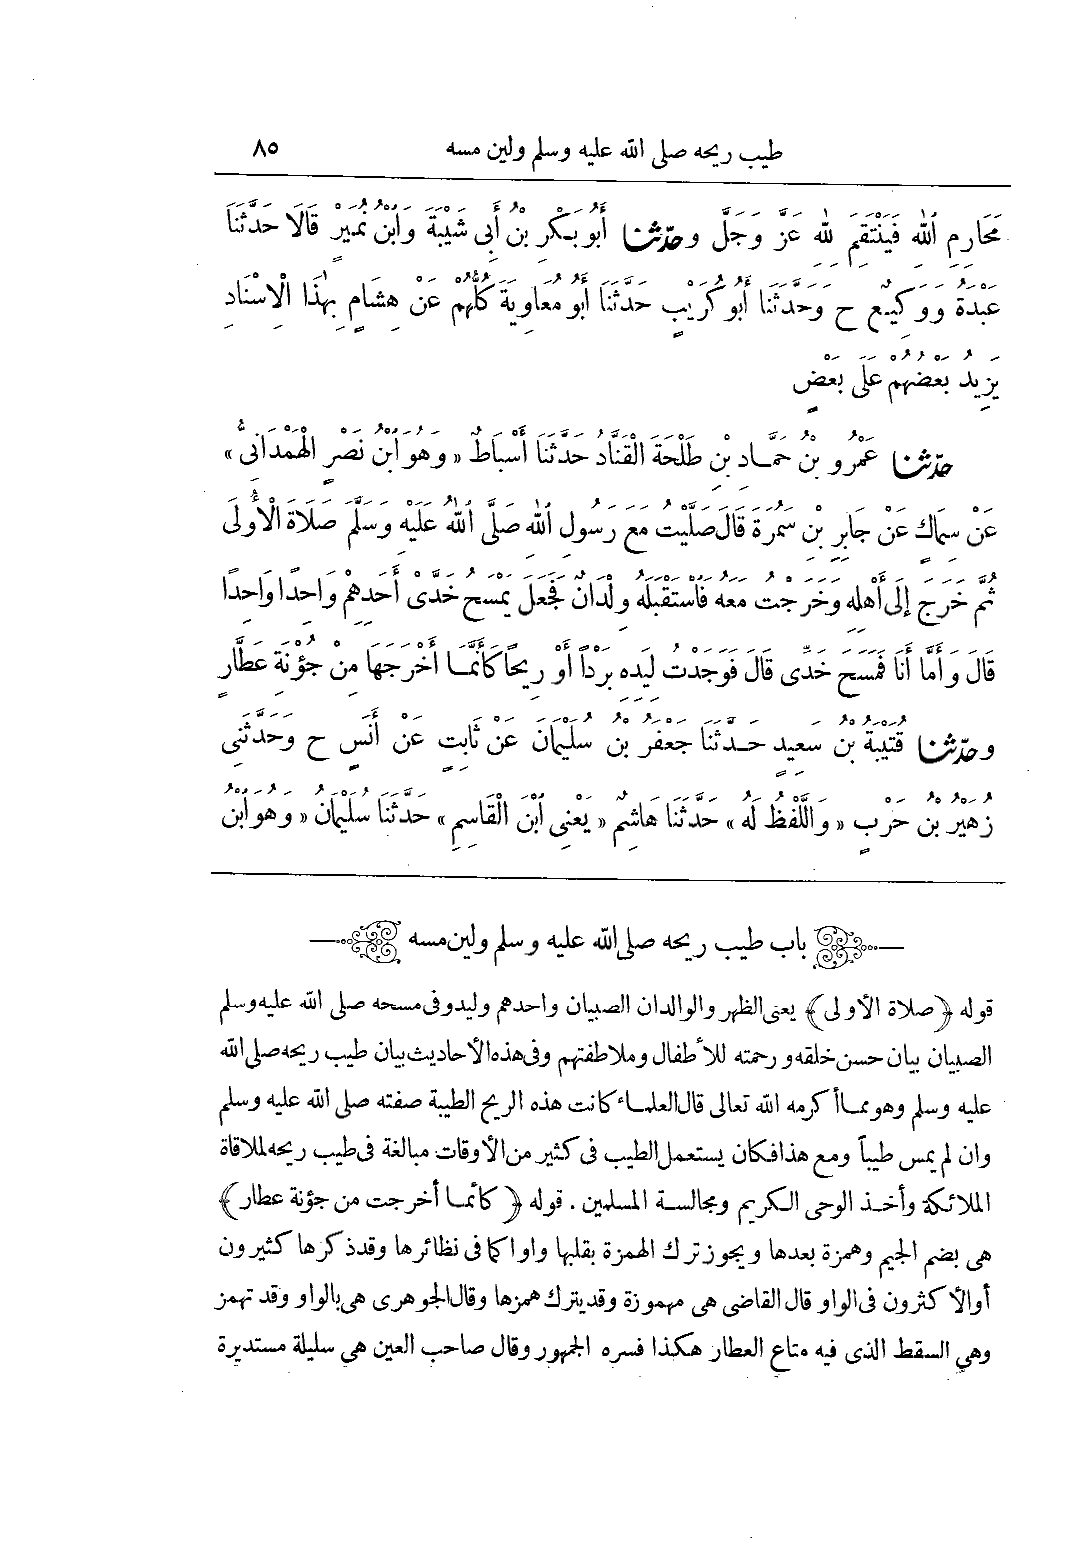 طيب ريحه صلى الله عليه وسلم ولين مسه ٨٥
مَحَارِمِ اللهِ فَيَنْتَقِمَ لِلهِ عَزَّ وَجَلَّ وحدّثنا أَبُو بَكْرِ بْنُ أَبِى شَيْبَةَ وَابْنُ نُمَيْرٍ قَالَا حَدَّثَنَا
عَبْدَةُ وَوَكِيعٌ ح وَحَدَّثَنَا أَبُو كُرَيْبٍ حَدَّثَنَا أَبُو مُعَاوِيَةَ كُلُّهُمْ عَنْ هِشَامٍ بِهٰذَا الْاِسْنَادِ
يَزِيدُ بَعْضُهُمْ عَلَى بَعْضٍ
حدّثنا عَمْرُو بْنُ حَمَّادِ بْنِ طَلْحَةَ الْقَنَّادُ حَدَّثَنَا أَسْبَاطٌ «وَهُوَ ابْنُ نَصْرٍ الْهَمْدَانِىُّ»
عَنْ سِمَاكٍ عَنْ جَابِرِ بْنِ سَمُرَةَ قَالَ صَلَّيْتُ مَعَ رَسُولِ اللهِ صَلَّى اللهُ عَلَيْهِ وَسَلَّمَ صَلَاةَ الْأُولَى
ثُمَّ خَرَجَ إِلَى أَهْلِهِ وَخَرَجْتُ مَعَهُ فَاسْتَقْبَلَهُ وِلْدَانٌ فَجَعَلَ يَمْسَحُ خَدَّىْ أَحَدِهِمْ وَاحِدًا وَاحِدًا
قَالَ وَأَمَّا أَنَا فَمَسَحَ خَدِّى قَالَ فَوَجَدْتُ لِيَدِهِ بَرْدًا أَوْ رِيحًا كَأَنَّمَا أَخْرَجَهَا مِنْ جُؤْنَةِ عَطَّارٍ
وحدّثنا قُتَيْبَةُ بْنُ سَعِيدٍ حَدَّثَنَا جَعْفَرُ بْنُ سُلَيْمَانَ عَنْ ثَابِتٍ عَنْ أَنَسٍ ح وَحَدَّثَنِى
زُهَيْرُ بْنُ حَرْبٍ «وَاللَّفْظُ لَهُ» حَدَّثَنَا هَاشِمٌ «يَعْنِى ابْنَ الْقَاسِمِ» حَدَّثَنَا سُلَيْمَانُ «وَهُوَ ابْنُ
باب طيب ريحه صلى الله عليه وسلم ولين مسه
قوله ﴿صلاة الأولى﴾ يعنى الظهر والوالدان الصبيان واحدهم وليد وفى مسحه صلى الله عليه وسلم
الصبيان بيان حسن خلقه ورحمته للأطفال وملاطفتهم وفى هذه الأحاديث بيان طيب ريحه صلى الله
عليه وسلم وهو مما أكرمه الله تعالى قال العلماء كانت هذه الريح الطيبة صفته صلى الله عليه وسلم
وان لم يمس طيباً ومع هذا فكان يستعمل الطيب فى كثير من الأوقات مبالغة فى طيب ريحه لملاقاة
الملائكة وأخذ الوحى الكريم ومجالسة المسلمين . قوله ﴿كأنما أخرجت من جؤنة عطار﴾
هى بضم الجيم وهمزة بعدها ويجوز ترك الهمزة بقلبها واوا كما فى نظائرها وقد ذكرها كثيرون
أو الأكثرون فى الواو قال القاضى هى مهموزة وقد يترك همزها وقال الجوهرى هى بالواو وقد تهمز
وهي السقط الذى فيه متاع العطار هكذا فسره الجمهور وقال صاحب العين هي سليلة مستديرة